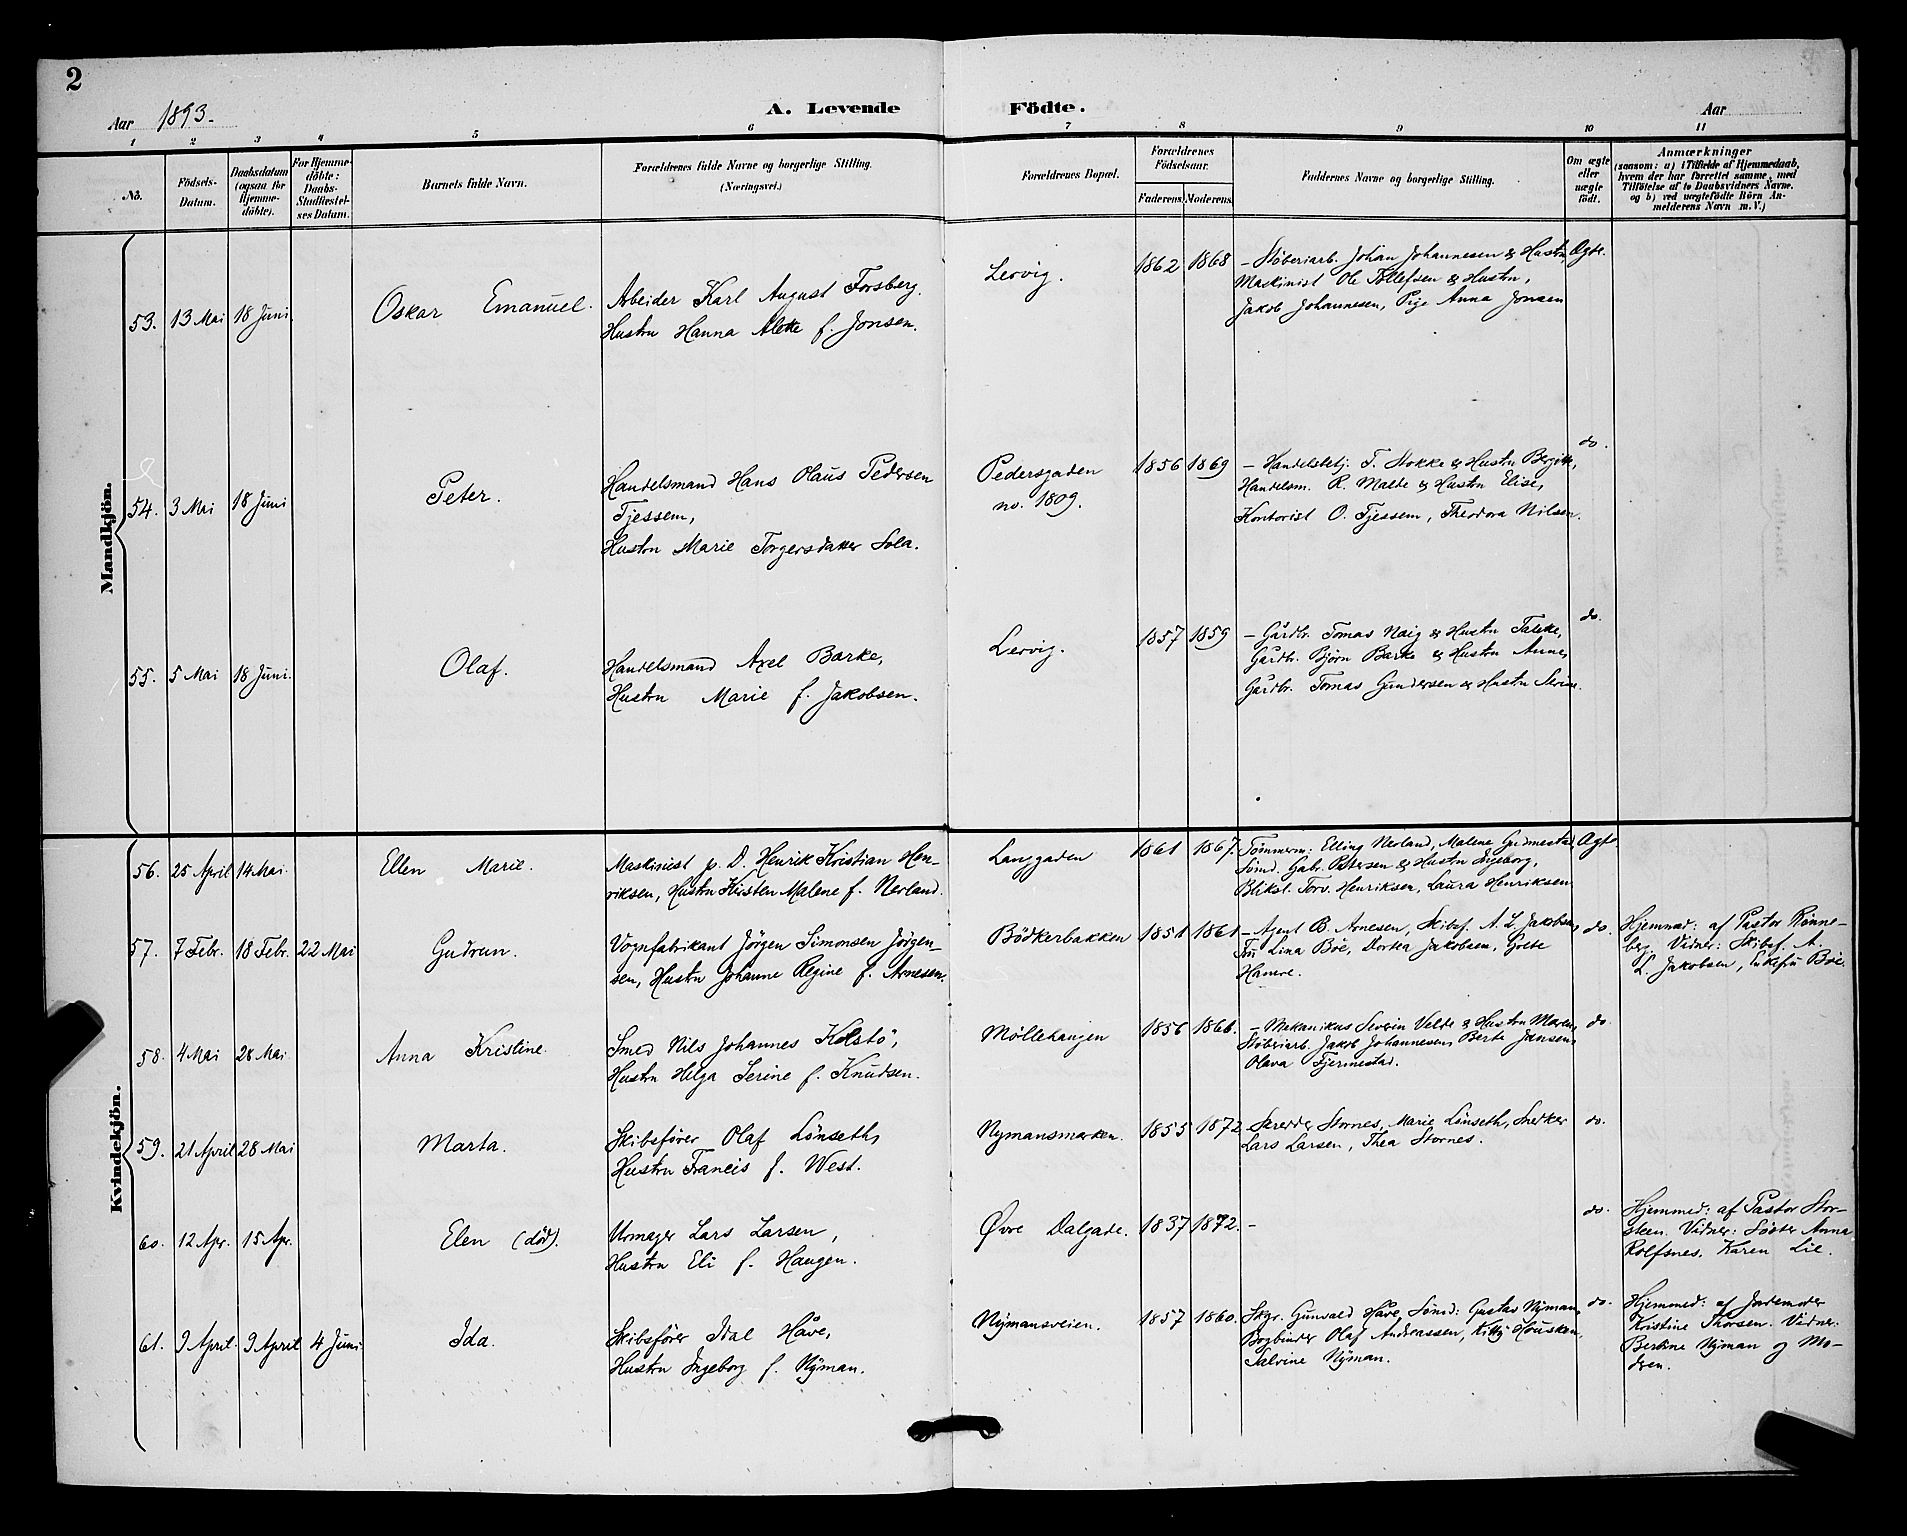 2
Aar 1893.
A. Levende Födte.
Aar
1 2 3 4 5 6 7 8 9 10 11
No.
Födsels-Datum.
Daabsdatum (ogsaa for Hjemme-döbte).
For Hjemme-döbte: Daabs-Stadfæstel-ses Datum.
Barnets fulde Navn.
Forældrenes fulde Navne og borgerlige Stilling. (Næringsvei.)
Forældrenes Bopæl.
Forældrenes Födselsaar.
Faderens. Moderens.
Faddernes Navne og borgerlige Stilling.
Om ægte eller uægte födt.
Anmærkninger
(saasom: a) i Tilfælde af Hjemmedaab,
hvem der har forrettet samme, med
Tilföielse af to Daabsvidners Navne.
og b) ved uægtefödte Börn An-
melderens Navn m. V.)
Mandkjön.
53. 13 Mai 18 Juni Oskar Emanuel. Arbeider Karl August Forsberg.
Hustru Hanna Alette f. Jonsen.
Lervig. 1862 1868 – Støberiarb. Johan Johannesen & Hustru, Ægte.
Maskinist Ole Tollefsen & Hustru,
Jakob Johannesen, Pige Anna Jonsen
54. 3 Mai 18 Juni Peter. Handelsmand Hans Olaus Pedersen
Tjessem,
Hustru Marie Torgersdatter Sola.
Pedersgaden
no. 1809.
1856 1869 – Handelsbetj. T. Stokke & Hustru Bergitte, do.
Handelsm. R. Malde & Hustru Elise,
Kontorist O. Tjessem, Theodora Nilsen.
55. 5 Mai 18 Juni. Olaf. Handelsmand Axel Barke,
Hustru Marie f. Jakobsen.
Lervig. 1857 1859 – Gårdbr. Tomas Naig & Hustru Taletta, do.
Gårdbr. Bjørn Barke & Hustru Anne,
Gårdbr. Tomas Gundersen & Hustru Serine.
Kvindekjön.
56. 25 April 14 Mai. Ellen Marie. Maskinist p. D. Henrik Kristian Hen-
riksen, Hustru Kirsten Malene f. Nerland.
Langgaden 1861 1867. Tömmerm: Elling Nerland, Malene Gudmestad Ægte
Sömd. Gabr. Pettersen & Hustru Ingeborg,
Bliksl. Torv. Henriksen, Laura Henriksen
57. 7 Febr. 18 Febr. 22 Mai Gudrun. Vognfabrikant Jörgen Simonsen Jörgen-
sen, Hustru Johanne Regine f. Arnesen.
Bödkerbakken 1851 1861 – Agent B. Arnesen, Skibsf. A. L. Jakobsen, do.
Fru Lina Böe, Dortea Jakobsen, Grete
Hamre.
Hjemmed: af Pastor Rönne-
berg. Vidner: Skibsf. A.
L. Jakobsen, Enkefru Böe.
58. 4 Mai 28 Mai. Anna Kristine. Smed Nils Johannes Kolstö,
Hustru Helga Serine f. Knudsen.
Möllehaugen 1856 1866. – Mekanikus Severin Velde & Hustru Maren, do.
Støberiarb. Jakob Johannesen, Berta Jansen,
Olava Fjermestad.
59. 21 April 28 Mai Marta. Skibsförer Olaf Lönseth,
Hustru Francis f. West.
Nymansmarken. 1855 1872 Skredder Stornes, Marie Lönseth, Snedker do.
Lars Larsen, Thea Stornes.
60. 12 Apr. 15 Apr. Elen (död). Urmager Lars Larsen,
Hustru Eli f. Haugen.
Øvre Dalgade. 1837 1872. – do.
Hjemmed: af Pastor Stor-
steen. Vidner: Söster Anna
Rolfsnes. Karen Lie.
61. 9 April. 9 April 4 Juni Ida. Skibsförer Idal Håve,
Hustru Ingeborg f. Nyman.
Nymansveien. 1857 1860. Skgr. Gunvald Håve, Sömd: Gustav Nyman, do.
Bogbinder Olaf Andreassen, Kitty Housken,
Salvine Nyman.
Hjemmed: af Jordemoder
Kristine Thorsen. Vidner:
Bertine Nyman og Mo-
deren.